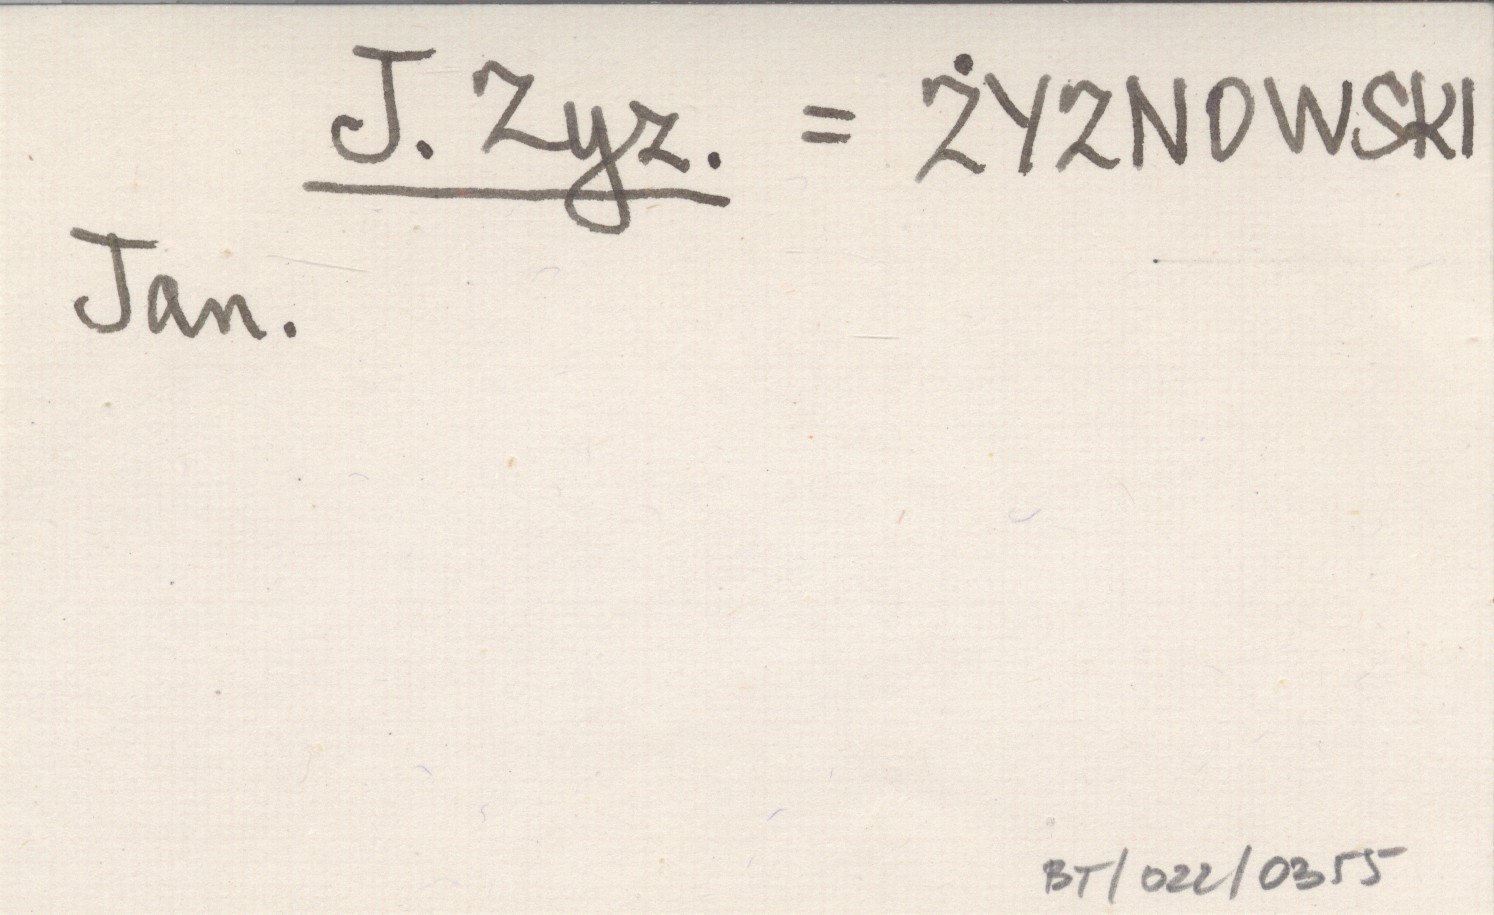 J. Zyz. = ŻYZNOWSKI
Jan.
BT/022/0355